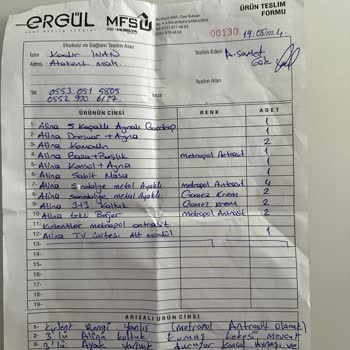 ERGÜL MFS ÜRÜN TESLİM FORMU
00130 19.05.2024
Eksiksiz ve Sağlam Teslim Alan
Teslim Eden
İsim Kadir İNAN
Adres Atakent Mah
Tel 0553 051 5805
0552 920 6127
İmza
ÜRÜNÜN CİNSİ RENK ADET
1- Alina 5 Kapaklı Aynalı Gardrop 1
2- Alina Dresuar + Ayna 1
3- Alina Komodin 2
4- Alina Baza + Başlık Metropol Antrasit 1
5- Alina Konsol + Ayna 1
6- Alina Sabit Masa 1
7- Alina Sandalye metal Ayaklı Metropol Antrasit 4
8- Alina Sandalye metal Ayaklı Gomez Krem 2
9- Alina 3+3 Koltuk Gomez Krem 2
10- Alina tekli Berjer Metropol Antrasit 2
11- Kırlentler metropol antrasit
12- Alina TV ünitesi Alt modül 1
13-
14-
15-
16-
17-
18-
19-
ARIZALI ÜRÜN CİNSİ
1- Kırlent Rengi Yanlış (Metropol Antrasit olacak
2- 3'lü Alina koltuk Kumaş Lekesi mevcut
3- 3'lü Ayak Konsol Aynası ve